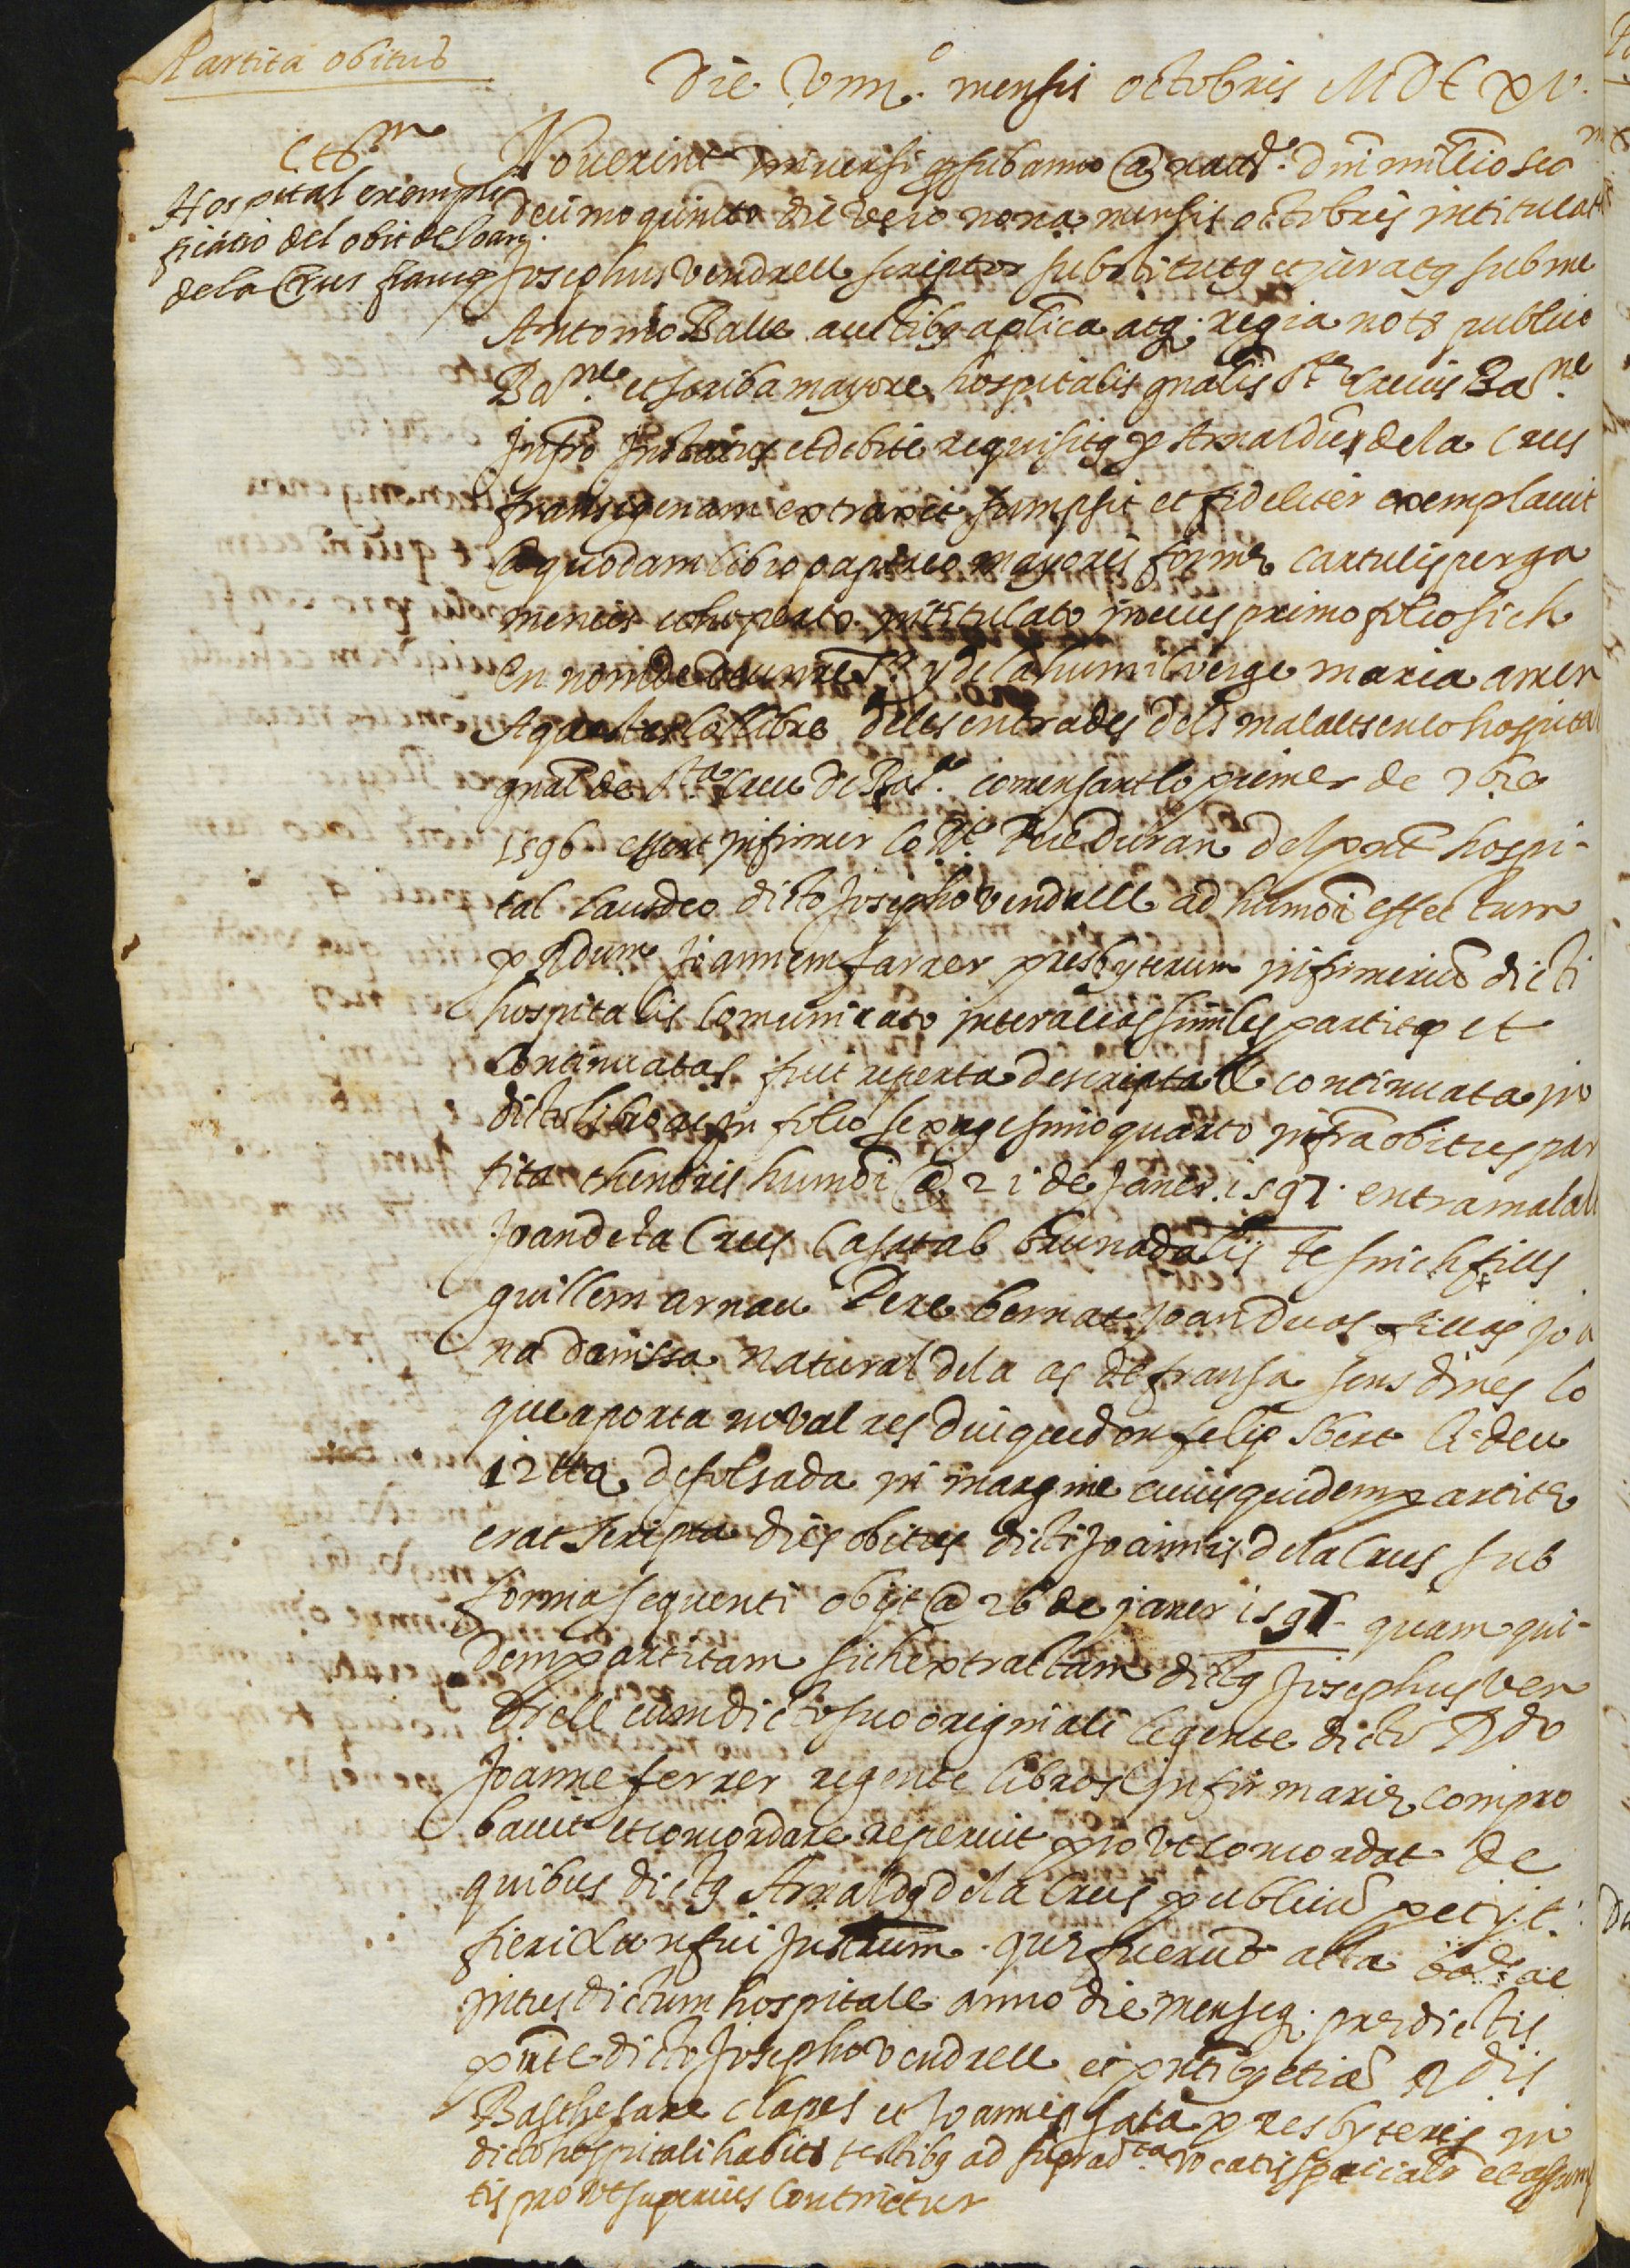 Partita obitus
Die Viiii.º mensis octobris MDCXV.
Cte.m
Hospital exempli
ficatio del obit de Joan
de la Creus frances
Noverint universi q sub anno @ nattē. Dni millio sexᵐ
decimo quinto die vero nona mensis octobris intitulat
Josephus Vendrell scriptor substitutq et juratq sub me
Antonio Batlle auctibq aplica atq. regia nots publico
Barne. et scriba mayore hospitalis gnalis Ste Crucis Barne.
infro instatus et debite requisitq p Arnaldum de la Creus
fransigenam extraxit sumpsit et fideliter exemplavit
a quodam libro papireo mayoris forme cartulis perga
meneis cohoperto intitulato in eius primo folio sich
En nom de deu nre Sr. y de la humil verge maria amen
Aquest es lo llibre de les entrades dels malalts en lo hospital
gnal de Sta. Creu de Bara. comensant lo primer de 7bre
1596 essent infirmer lo Rt. Pere Duran del pnt hospi-
tal laus deo dicto Josepho Vendrell ad humōi effectum
p Rdum Joannem farrer presbyterum infirmerium dicti
hospitalis comunicato inter alias similes partitas et
continuatas fuit reperta descripta & continuata in
dicto libro ac in folio sexagesimo quarto infra obitus par
tita thenoris humōi @ 21 de Janer 1597. entra malalt
Joan de la Creus casat ab brunadalis te sinch fills
guillem arnau Pere bernat Joan duas fillas joa
na danissa natural de la as de fransa sens dines lo
que aporta no val res duigue don felip sbert li deu
12 tta de folsada in margine cuiusquidem partite
erat scripta dies obitus dicti Joannis de la Creus sub
forma sequenti obijt @ 26 de janer 1597 quam qui-
dem partitam sich extractam dictq Josephus Ven
drell cum dicto suo originali legente dicto Rdo
Joanne ferrer regente libros infirmarie compro
bavit et concordare reperiit prout concordat de
quibus dictq Arnaldq de la Creus publicū petijt
fieri & confici Instrum. que fuerunt acta Bare ac
intus dictum hospitale anno die menseq. predictis
pnte dicto Josepho Vendrell et pntibq etiā Rdis
Balthesare Clapes et Joannes sala presbyteris in
dicto hospitali habits testibq ad supradta. vocatis specialr et assump
tis prout superius continetur